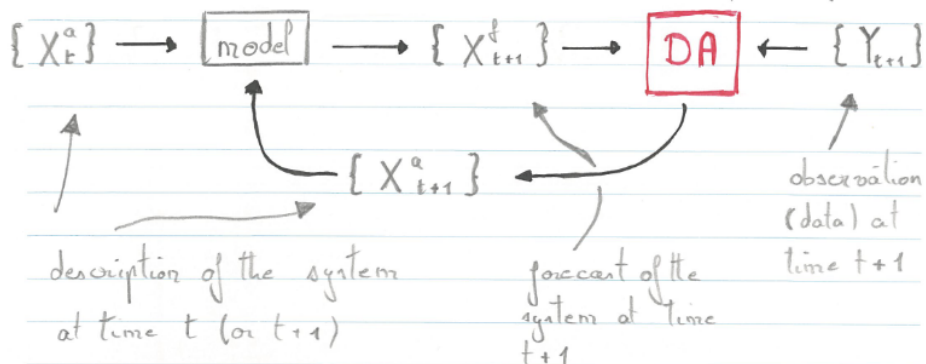 { X^a_t } → model → { X^f_{t+1} } → DA ← { Y_{t+1} }
{ X^a_{t+1} }
description of the system
at time t (or t+1)
forecast of the
system at time
t+1
observation
(data) at
time t+1